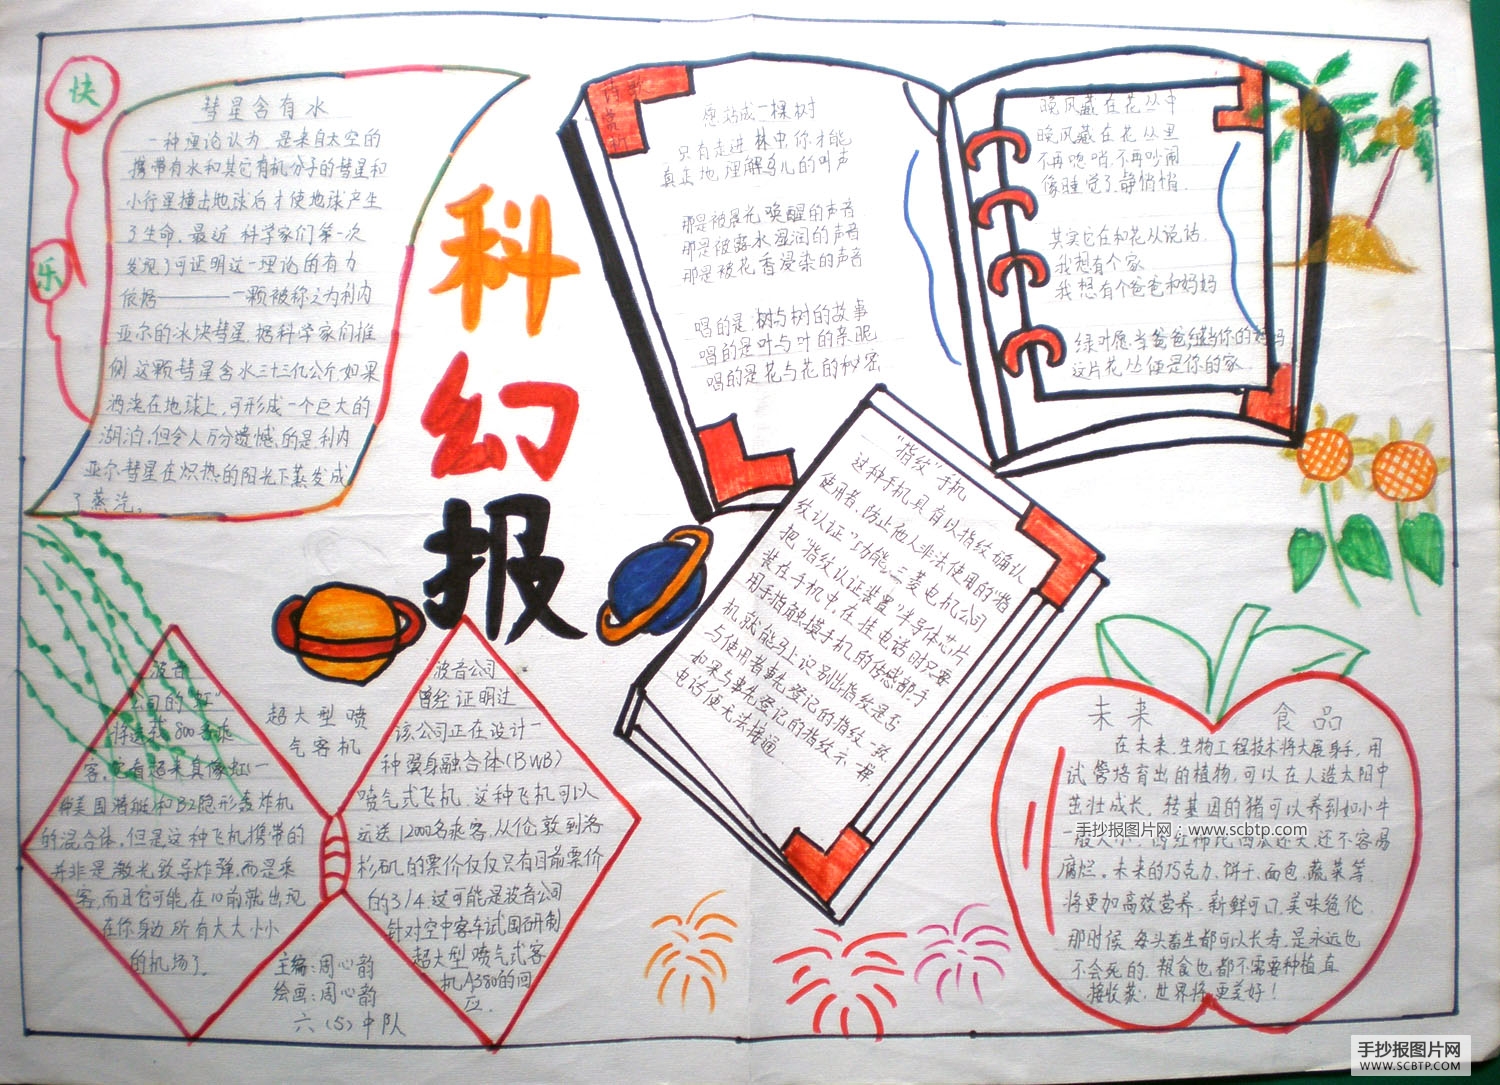 快
乐
彗星含有水
一种理论认为 是来自太空的
携带有水和其它有机分子的彗星和
小行星撞击地球后才使地球产生
了生命。最近 科学家们第一次
发现了可证明这一理论的有力
依据————一颗被称之为利内
亚尔的冰块彗星.据科学家们推
侧 这颗彗星含水三十三亿公斤,如果
洒浇在地球上,可形成一个巨大的
湖泊.但令人万分遗憾.的是利内
亚尔彗星在炽热的阳光下蒸发成
了蒸汽。
科
幻
报
愿站成一棵树
只有走进 林中,你才能
真正地 理解鸟儿的叫声
那是被晨光 唤醒的声音
那是被露水湿润的声音
那是被花香浸染的声音
唱的是 树与树的故事
唱的是叶与叶的亲昵
唱的是花与花的秘密
晚风藏在花丛中
晚风藏在花丛里
不再咆哨.不再吵闹
像睡觉了.静悄悄.
其实它在和花丛说话.
我想有个家
我想有个爸爸和妈妈
绿叶愿当爸爸 当你的妈妈
这片花丛便是你的家
"指纹"手机
这种手机,具有以指纹确认
使用者、防止他人非法使用的"指
纹认证"功能.三菱电机公司
把"指纹认证装置"半导体芯片
装在手机中,在挂电话时只要
用手指触摸手机的传感部,手
机就能马上识别出指纹是否
与使用者事先登记的指纹一致.
如果与事先登记的指纹不一样,
电话便无法接通.
波音
公司的"虹"
将运载 800名乘
客,它看起来真像虹一
种美国潜艇和B2隐形轰炸机
的混合体,但是这种飞机携带的
并非是激光致导炸弹,而是乘
客.而且它可能在10前就出现
在你身边 所有大大小小
的机场了。
超大型喷
气客机
波音公司
曾经证明过
该公司正在设计一
种翼身融合体(BWB)
喷气式飞机.这种飞机可以
运送1200名乘客.从伦敦到洛
杉矶的票价仅仅只有目前票价
的3/4.这可能是波音公司
针对空中客车试图研制
超大型喷气式客
机A380的回
应.
主编:周心韵
绘画:周心韵
六(5)中队
未来 食品
在未来.生物工程技术将大展身手,用
试管培育出的植物,可以在人造太阳中
茁壮成长. 转基因的猪可以养到如小牛
一般大小.西红柿比西瓜还大,还不容易
腐烂。未来的巧克力、饼干、面包、蔬菜等
将更加高效营养、新鲜可口,美味绝伦.
那时候 每头畜生都可以长寿,是永远也
不会死的.粮食也都不需要种植,直
接收获;世界将更美好!
手抄报图片网:www.scbtp.com
手抄报图片网
WWW.SCBTP.COM